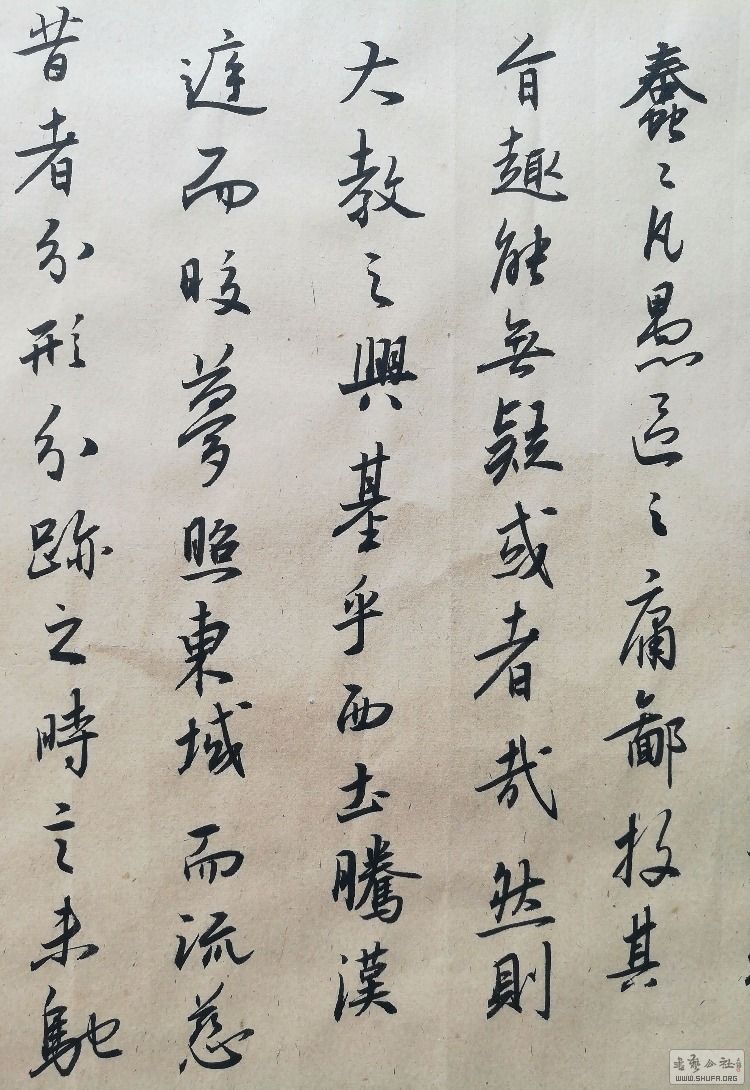 蠢〻凡愚區〻庸鄙投其
旨趣能無疑或者哉然則
大教之興基乎西土騰漢
庭而皎夢照東域而流慈
昔者分形分跡之時言未馳
WWW.SHUFA.ORG